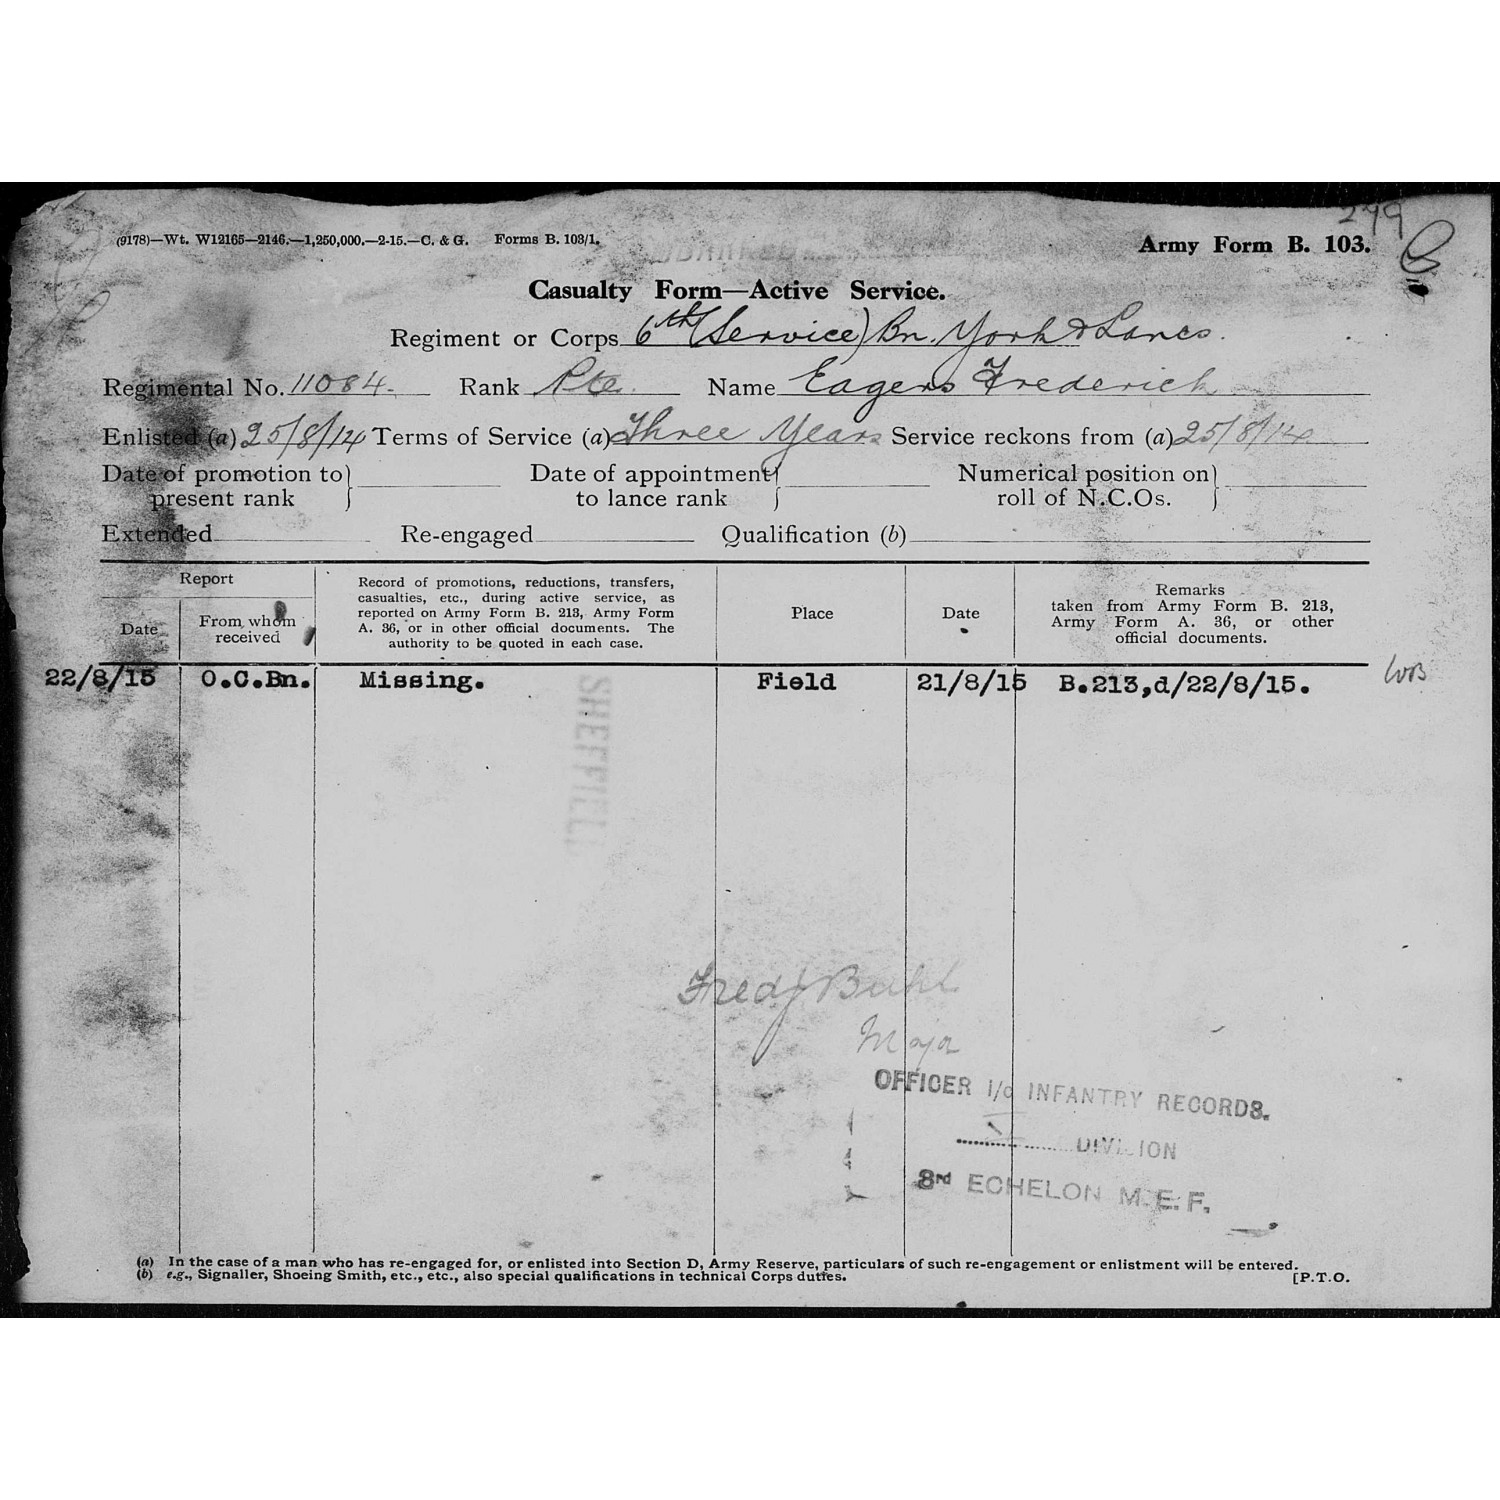 299
(9178)—Wt. W12165—2146.—1,250,000.—2-15.—C. & G. Forms B. 103/1.
Army Form B. 103.
Casualty Form—Active Service.
Regiment or Corps 6th (Service) Bn. York & Lancs.
Regimental No. 11084. Rank Pte. Name Eagers Frederick
Enlisted (a) 25/8/14 Terms of Service (a) Three Years Service reckons from (a) 25/8/14
Date of promotion to present rank } Date of appointment to lance rank } Numerical position on roll of N.C.Os. }
Extended Re-engaged Qualification (b)
Report
Date
From whom received
Record of promotions, reductions, transfers,
casualties, etc., during active service, as
reported on Army Form B. 213, Army Form
A. 36, or in other official documents. The
authority to be quoted in each case.
Place
Date
Remarks
taken from Army Form B. 213,
Army Form A. 36, or other
official documents.
22/8/15 O.C.Bn. Missing. Field 21/8/15 B.213,d/22/8/15.
SHEFFIEL
OFFICER i/c INFANTRY RECORDS.
DIVISION
3rd ECHELON M.E.F.
(a) In the case of a man who has re-engaged for, or enlisted into Section D, Army Reserve, particulars of such re-engagement or enlistment will be entered.
(b) e.g., Signaller, Shoeing Smith, etc., etc., also special qualifications in technical Corps duties.
[P.T.O.